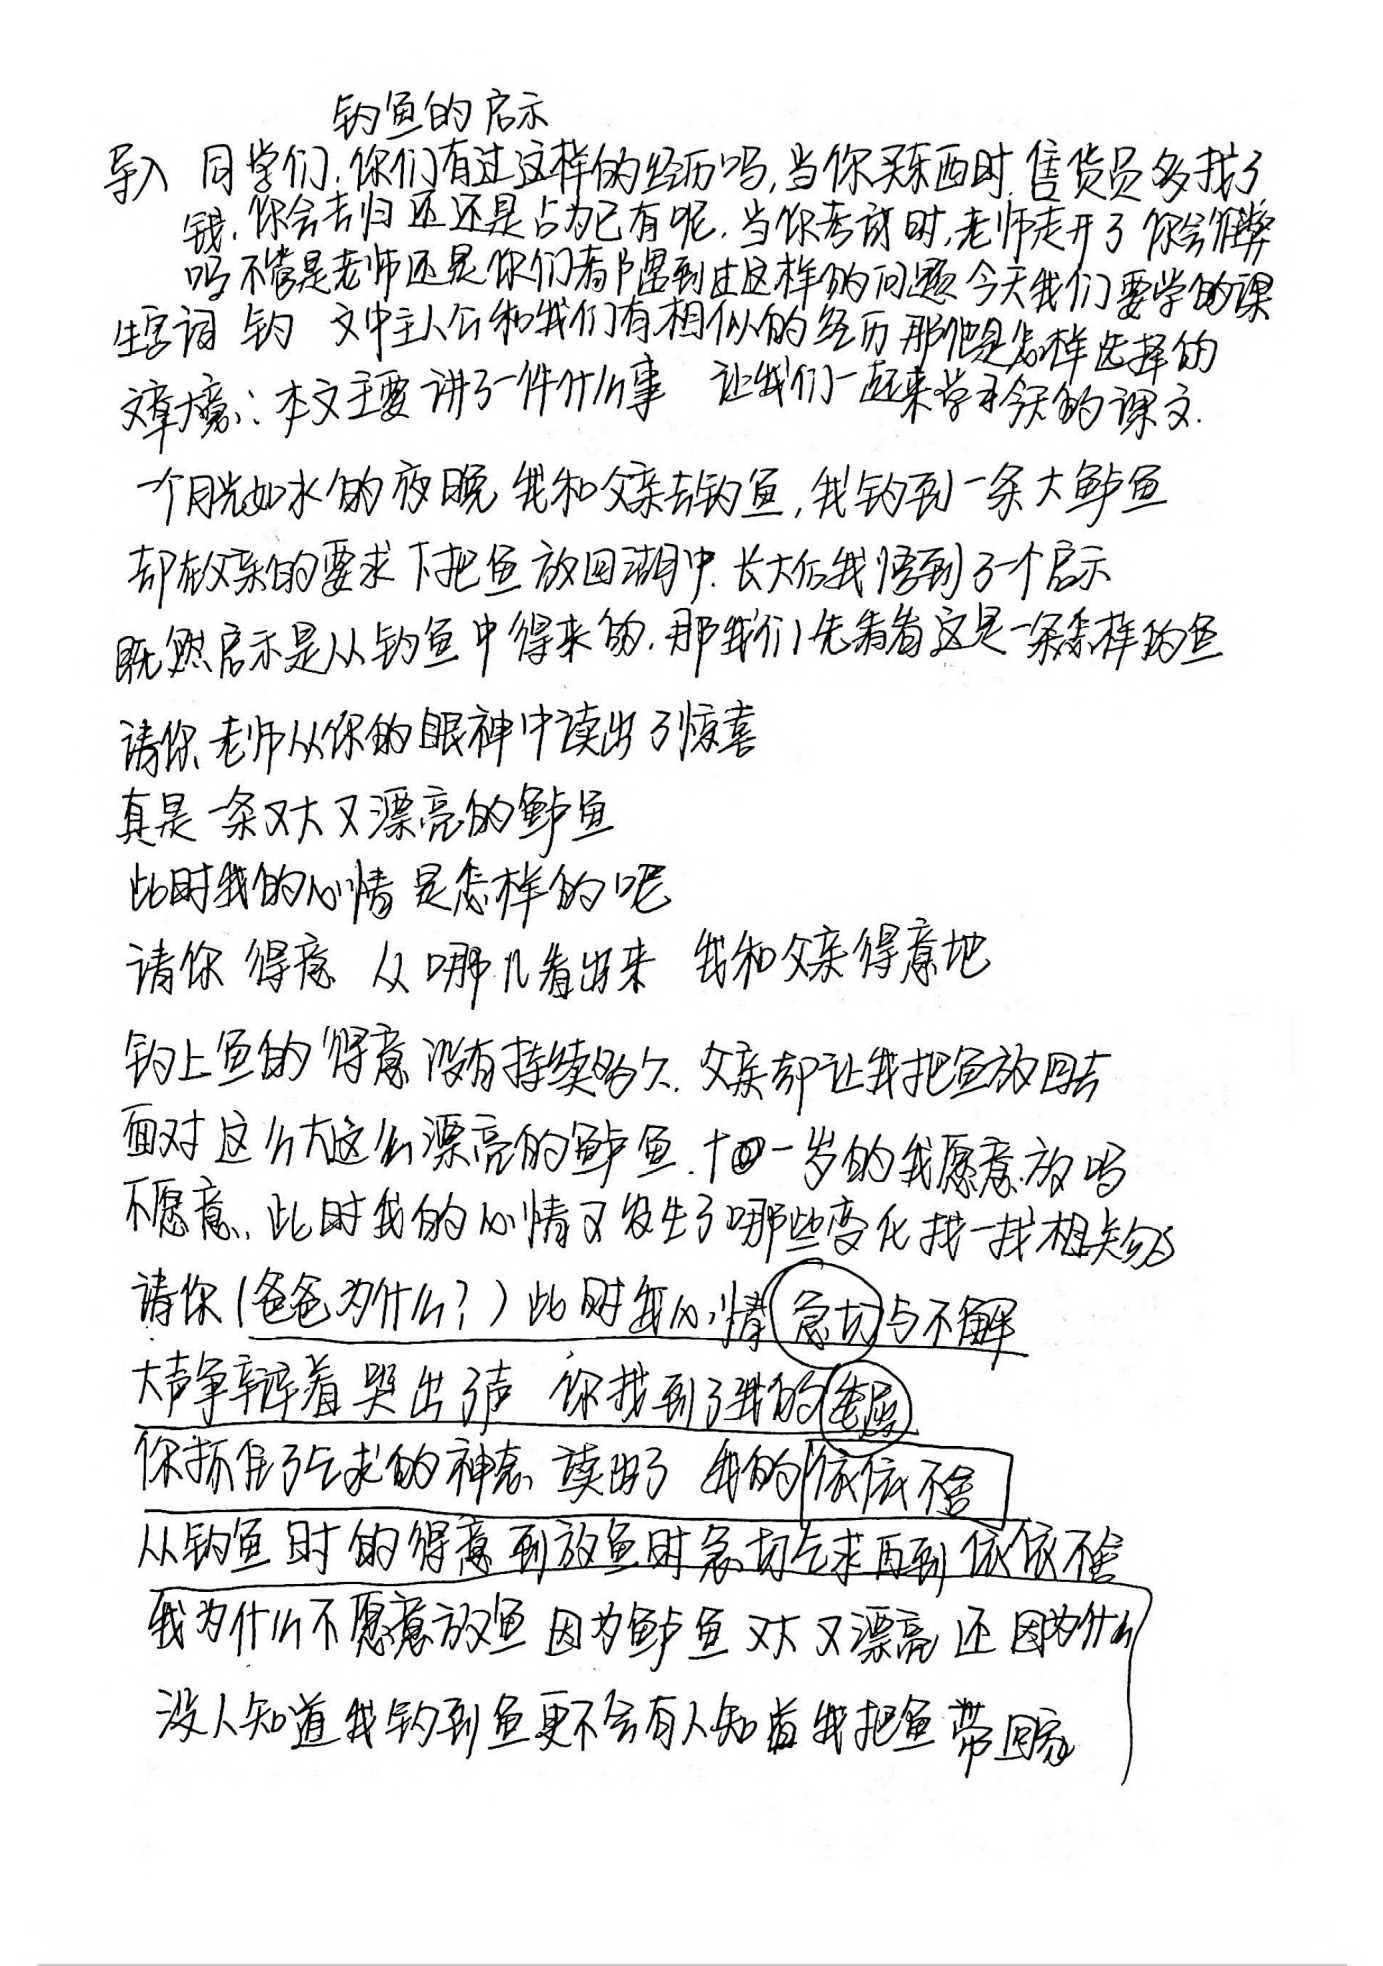 钓鱼的启示
导入 同学们,你们有过这样的经历吗,当你买东西时,售货员多找了
钱,你会去归还还是占为己有呢,当你考试时,老师走开了你会作弊
吗不管是老师还是你们都遇到过这样的问题今天我们要学的课
生字词 钓 文中主人公和我们有相似的经历那他是怎样选择的
文章大意:本文主要讲了一件什么事 让我们一起来学习今天的课文.
一个月光如水的夜晚我和父亲去钓鱼,我钓到一条大鲈鱼
却在父亲的要求下把鱼放回湖中.长大后我悟到了一个启示
既然启示是从钓鱼中得来的,那我们先看看这是一条怎样的鱼
请你,老师从你的眼神中读出了惊喜
真是一条又大又漂亮的鲈鱼
此时我的心情是怎样的呢
请你 得意 从哪儿看出来 我和父亲得意地
钓上鱼的得意没有持续多久,父亲却让我把鱼放回去
面对这么大这么漂亮的鲈鱼,十一岁的我愿意放吗
不愿意,此时我的心情又发生了哪些变化找一找相关句子
请你(爸爸为什么?)此时我心情急切与不解
大声争辩着哭出了声 你找到了我的委屈
你抓住了乞求的神态 读出了 我的依依不舍
从钓鱼时的得意到放鱼时急切乞求再到依依不舍
我为什么不愿意放鱼因为鲈鱼又大又漂亮还因为什么
没人知道我钓到鱼更不会有人知道我把鱼带回家